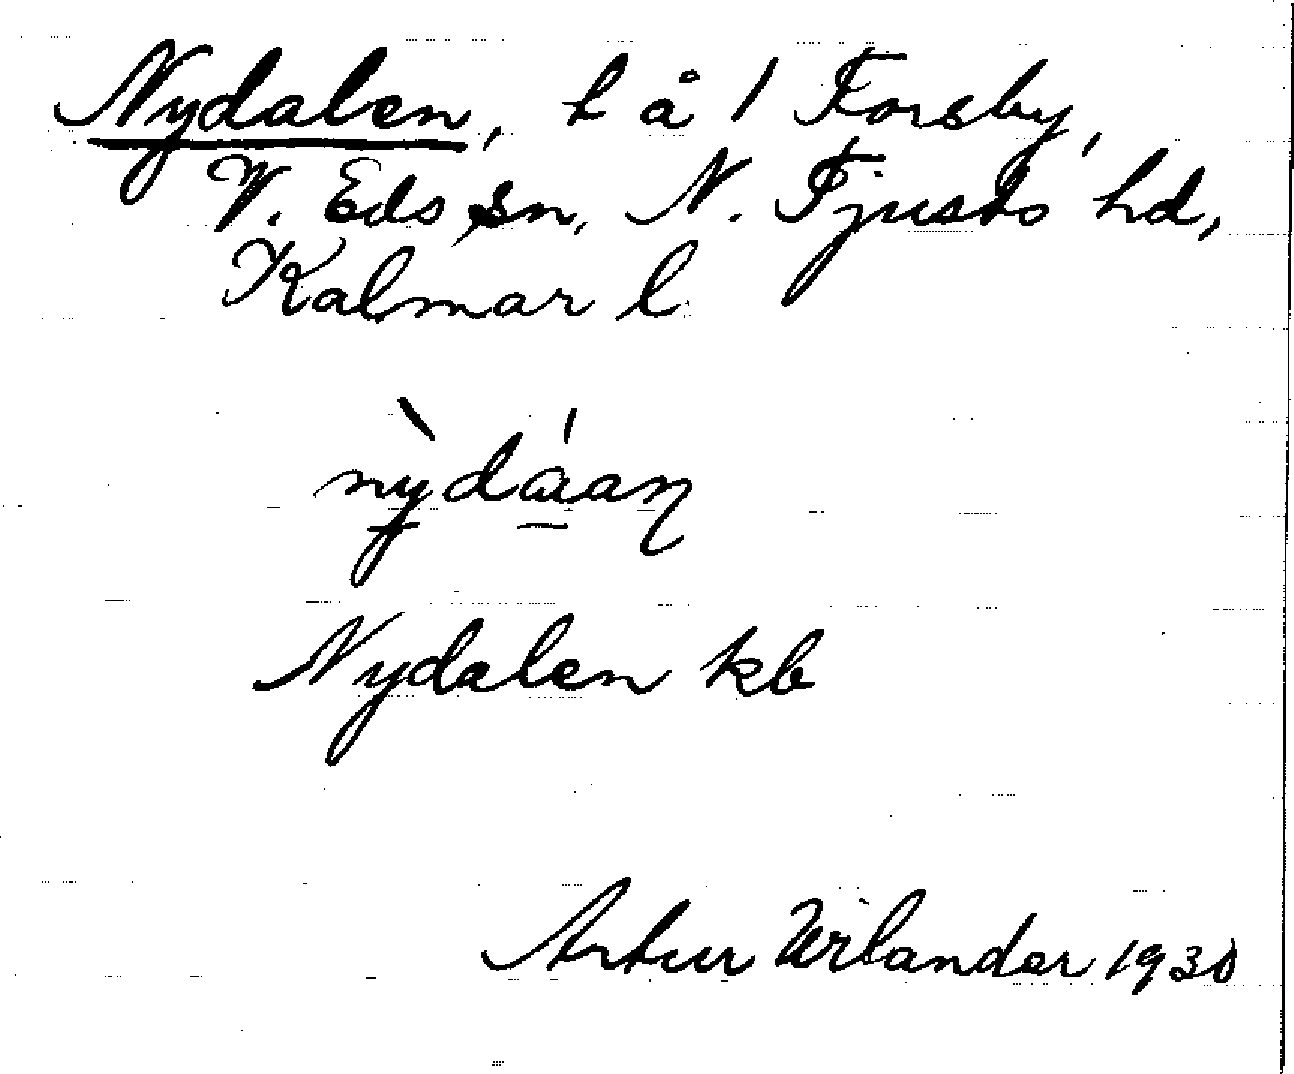 Nydalen, l å 1 Forsby,
V. Eds sn, N. Tjusts hd,
Kalmar l
Nydalen kb
Artur Wilander 1930